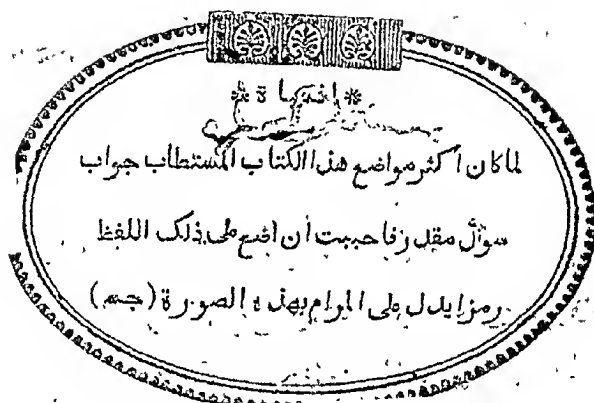 لما كان اكثر مواضع هذا الكتاب المستطاب جواب
سوال مقدر فاحببت أن اضع على ذلك اللفظ
رمزا يدل على المرام بهذه الصورة (جسم)